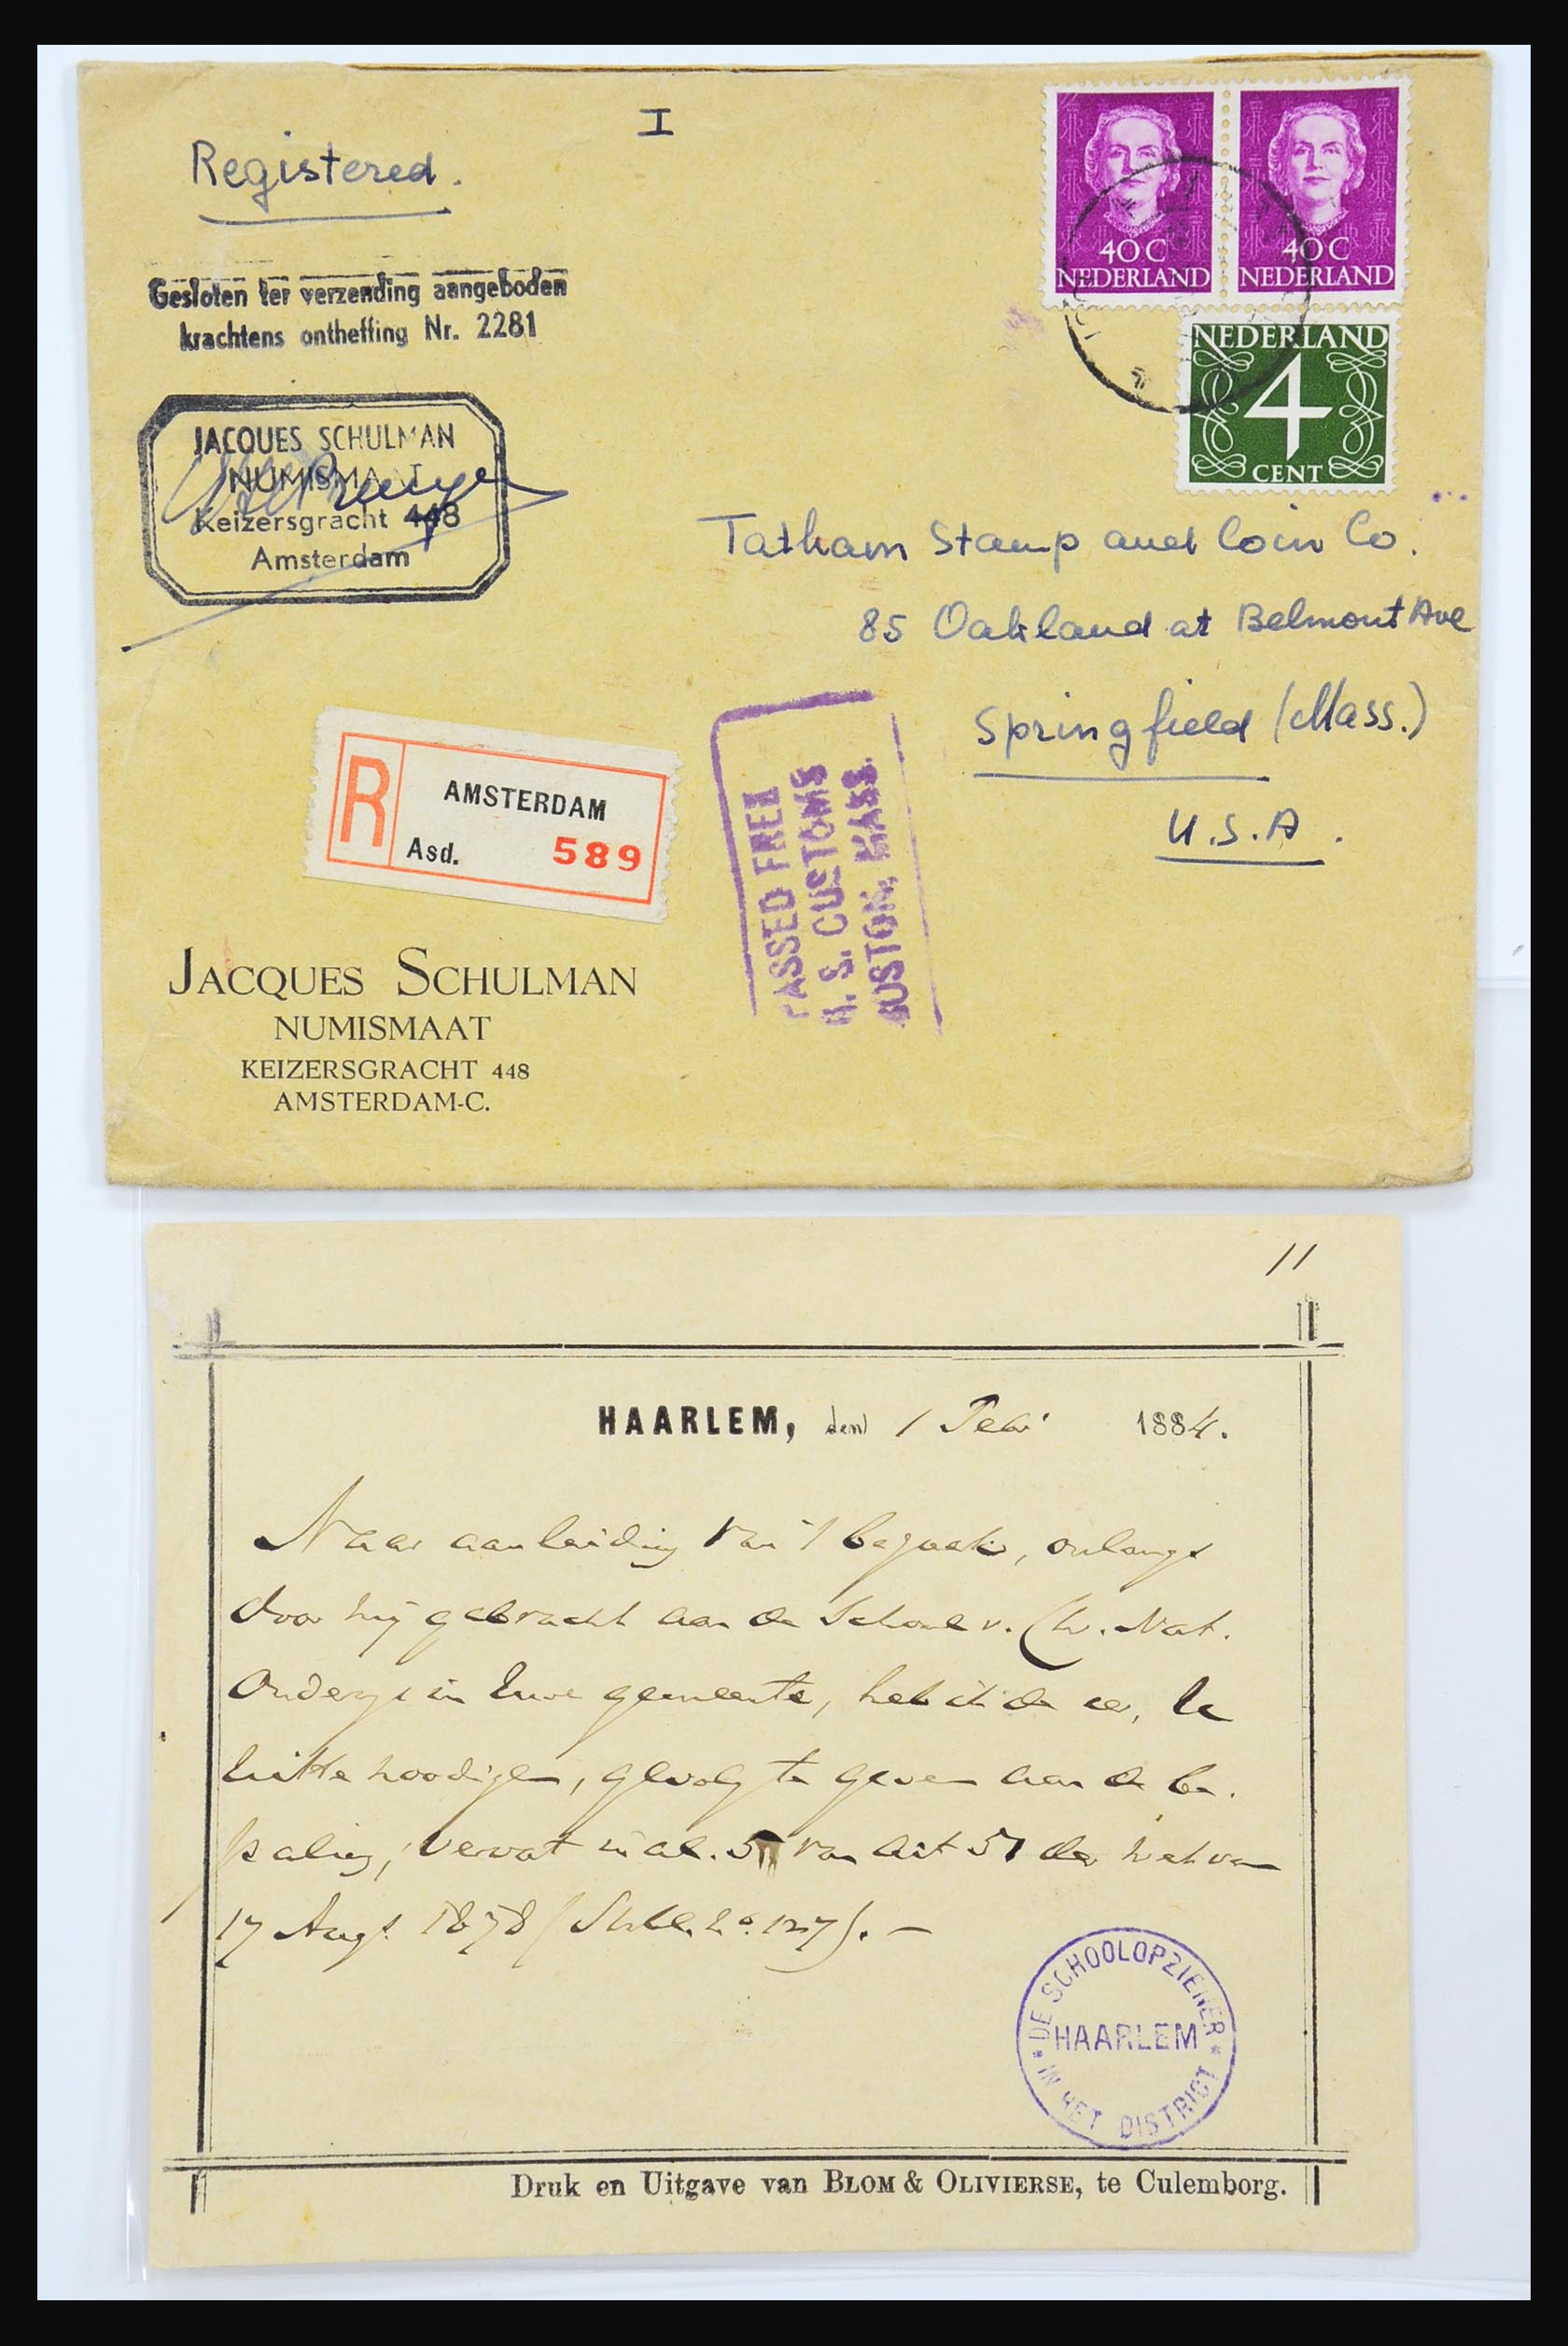 I
Registered.
Gesloten ter verzending aangeboden
krachtens ontheffing Nr. 2281
JACQUES SCHULMAN
NUMISMAAT
Keizersgracht 448
Amsterdam
40 C
NEDERLAND
40 C
NEDERLAND
NEDERLAND
4
CENT
Tatham Stamp and Coin Co.
85 Oakland at Belmont Ave
Springfield (Mass.)
U.S.A.
R
AMSTERDAM
Asd. 589
PASSED FREE
U. S. CUSTOMS
BOSTON, MASS.
JACQUES SCHULMAN
NUMISMAAT
KEIZERSGRACHT 448
AMSTERDAM-C.
11
HAARLEM, den 1 Febr 1884.
Naar aanleiding van 't bezoek, onlangs
door mij gebracht aan de School v. Chr. Nat.
Onderwijs in Uwe gemeente, heb ik de eer, U
uit te noodigen, gevolg te geven aan de be-
paling, vervat in al. 5 van art 51 der wet van
17 Augs. 1878 (Stbl. No. 127). —
DE SCHOOLOPZIENER
HAARLEM
IN HET DISTRICT
Druk en Uitgave van BLOM & OLIVIERSE, te Culemborg.